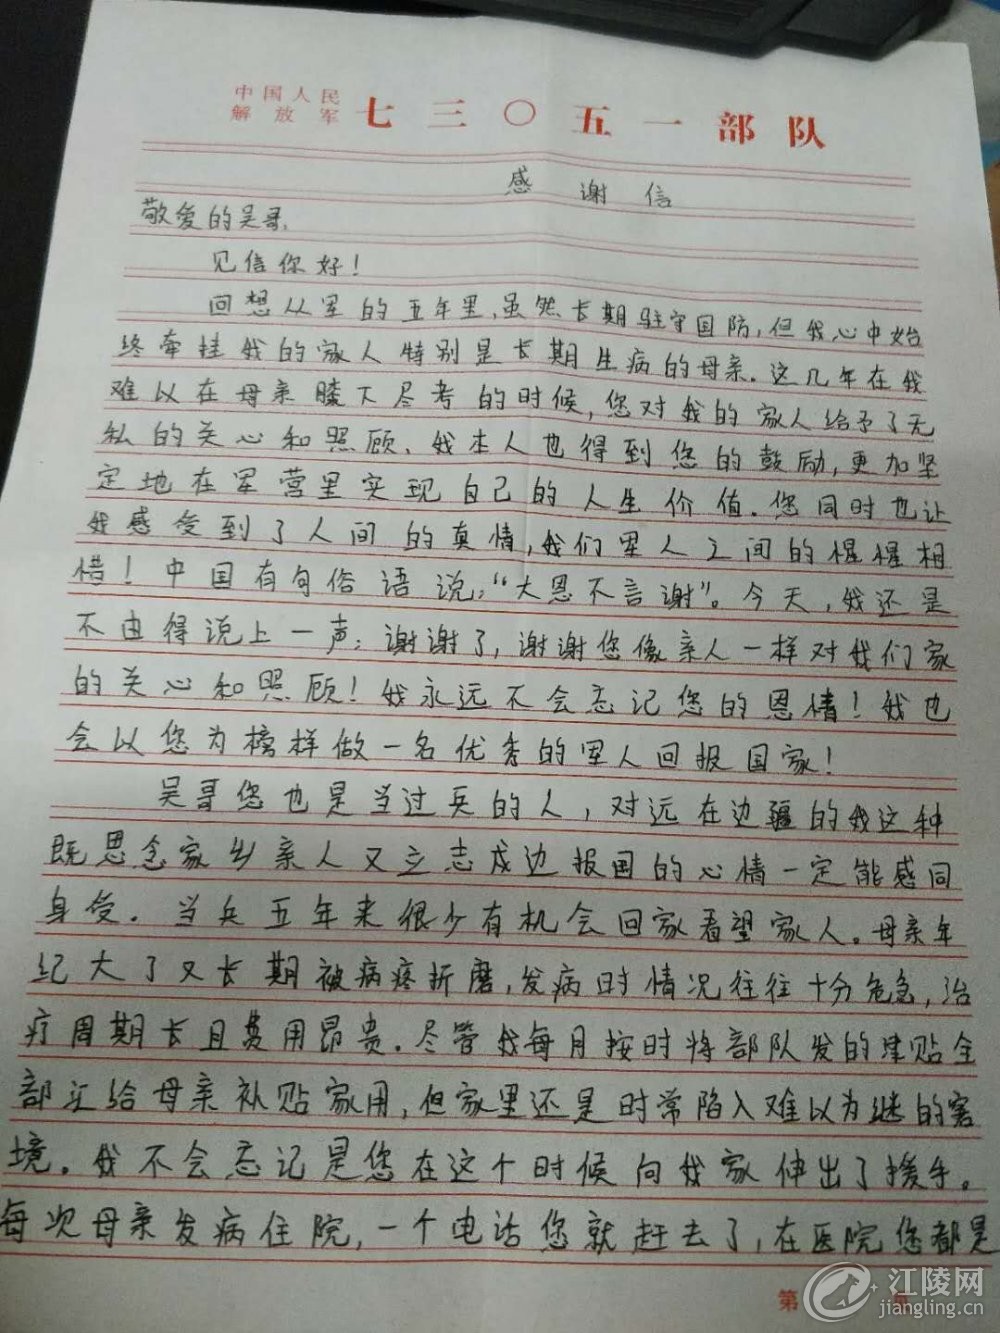 中国人民
解放军 七三〇五一部队
感谢信
敬爱的吴哥，
见信你好！
回想从军的五年里，虽然长期驻守国防，但我心中始
终牵挂我的家人特别是长期生病的母亲。这几年在我
难以在母亲膝下尽孝的时候，您对我的家人给予了无
私的关心和照顾，我本人也得到您的鼓励，更加坚
定地在军营里实现自己的人生价值。您同时也让
我感受到了人间的真情，我们军人之间的惺惺相
惜！中国有句俗语说：“大恩不言谢”。今天，我还是
不由得说上一声：谢谢了，谢谢您像亲人一样对我们家
的关心和照顾！我永远不会忘记您的恩情！我也
会以您为榜样做一名优秀的军人回报国家！
吴哥您也是当过兵的人，对远在边疆的我这种
既思念家乡亲人又立志戍边报国的心情一定能感同
身受。当兵五年来很少有机会回家看望家人。母亲年
纪大了又长期被病疼折磨，发病时情况往往十分危急，治
疗周期长且费用昂贵。尽管我每月按时将部队发的津贴全
部汇给母亲补贴家用，但家里还是时常陷入难以为继的窘
境。我不会忘记是您在这个时候向我家伸出了援手。
每次母亲发病住院，一个电话您就赶去了，在医院您都是
第 页
江陵网
jiangling.cn